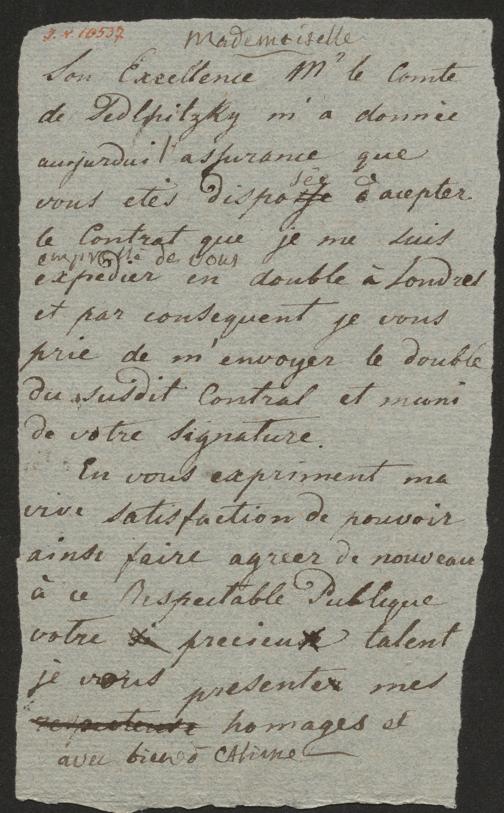 J. N. 10537
Mademoiselle
Son Excellence Mr le Comte
de Sedlnitzky m'a donnée
aujordui l'assurance que
vous etés disposée à acepter
le Contrat que je me suis
empressé de vous
expedier en double à Londres
et par consequent je vous
prie de m'envoyer le double
du susdit Contrat et muni
de votre signature.
En vous expriment ma
vive satisfaction de pouvoir
ainsi faire agreer de nouveau
à ce Respectable Publique
votre si precieux talent
je vous presente mes
respecteuse homages et
avec bien